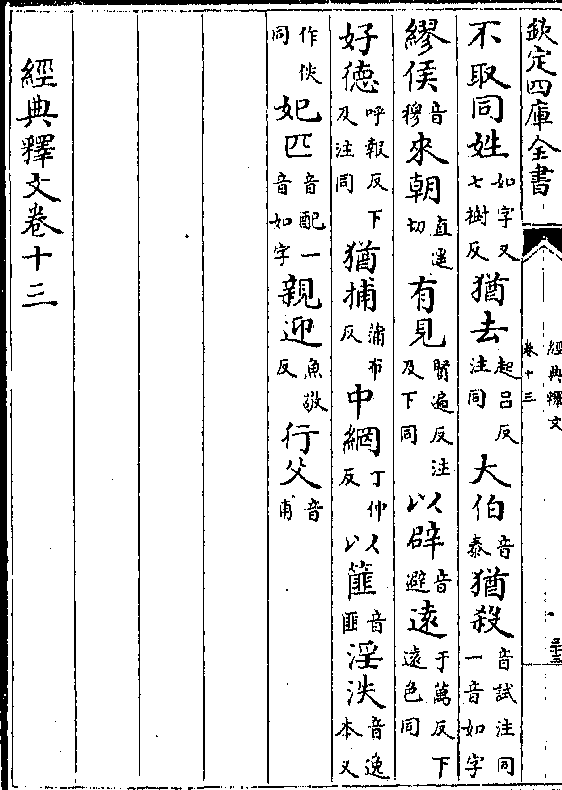 欽定四庫全書
經典釋文
卷十三
不取同姓如字又七樹反猶去起呂反注同大伯音泰猶殺音試注同一音如字
繆侯音穆來朝直遥切有見賢遍反注及下同以辟音避遠于萬反下遠色同
好徳呼報反下及注同猶捕蒲布反中網丁仲反以篚音匪淫泆音逸本又
作佚同妃匹音配一音如字親迎魚敬反行父音甫
經典釋文卷十三